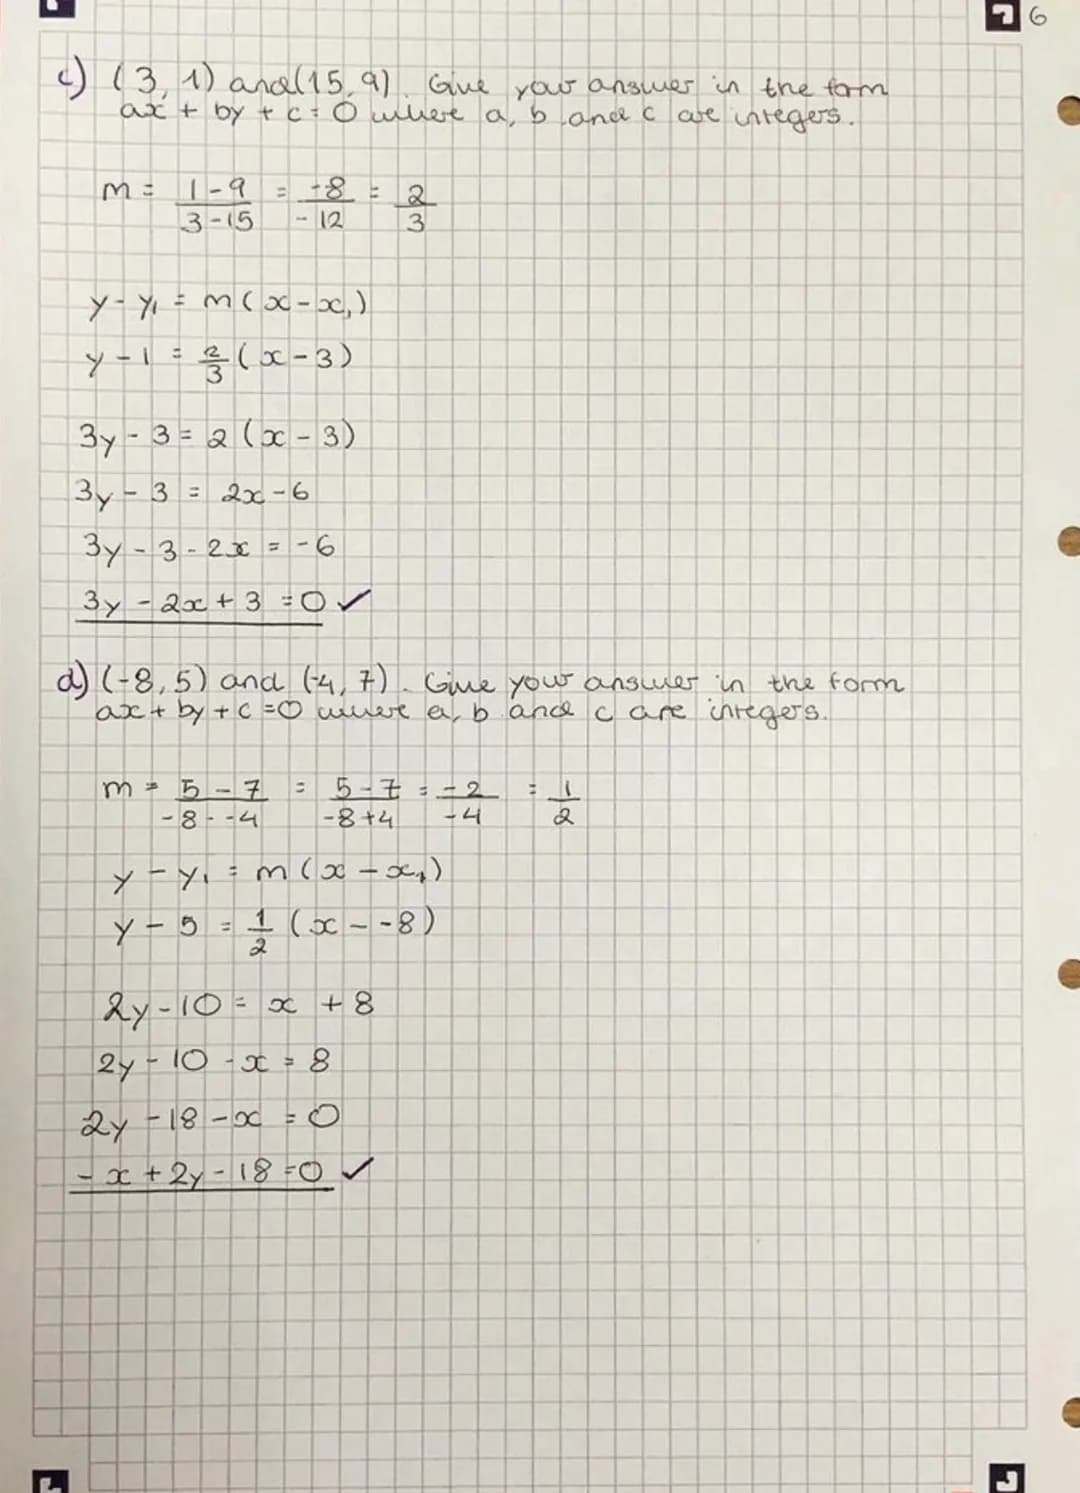 6
c) (3, 1) and (15, 9). Give your answer in the form
ax + by + c = 0 where a, b and c are integers.
m = 1-9/3-15 = -8/-12 = 2/3
y - y₁ = m(x - x₁)
y - 1 = 2/3 (x - 3)
3y - 3 = 2 (x - 3)
3y - 3 = 2x - 6
3y - 3 - 2x = -6
3y - 2x + 3 = 0 ✓
d) (-8, 5) and (-4, 7). Give your answer in the form
ax + by + c = 0 where a, b and c are integers.
m = 5 - 7/-8 - -4 = 5 - 7/-8 + 4 = -2/-4 = 1/2
y - y₁ = m (x - x₁)
y - 5 = 1/2 (x - -8)
2y - 10 = x + 8
2y - 10 - x = 8
2y - 18 - x = 0
- x + 2y - 18 = 0 ✓